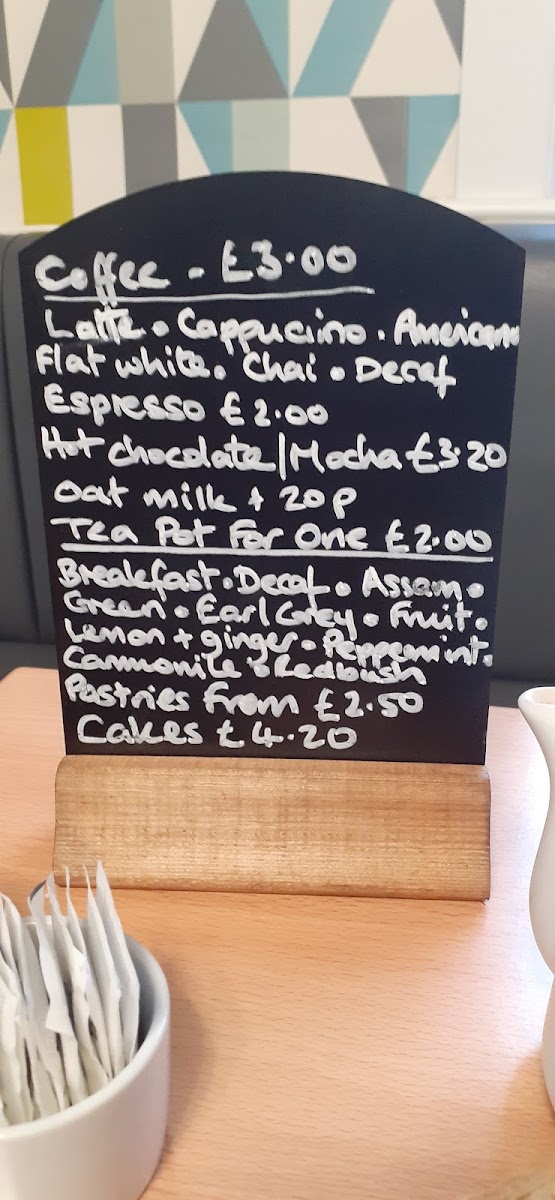 Coffee - £3.00
Latte • Cappuciino • Americano
Flat white • Chai • Decaf
Espresso £2.00
Hot chocolate/Mocha £3.20
Oat milk + 20p
Tea Pot For One £2.00
Breakfast • Decaf • Assam •
Green • Earl Grey • Fruit •
Lemon + ginger • Peppermint •
Cammomile • Redbush
Pastries from £2.50
Cakes £4.20